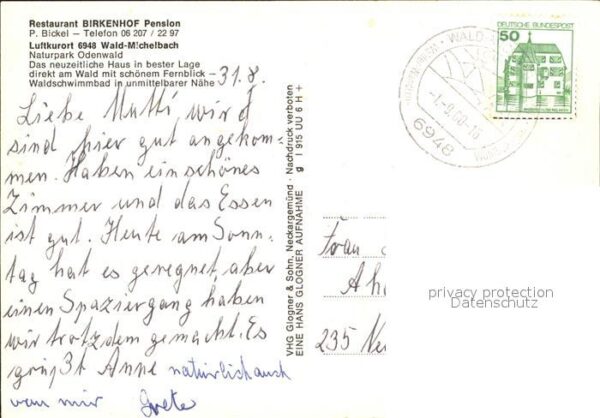 Restaurant BIRKENHOF Pension
P. Bickel – Telefon 06 207 / 22 97
Luftkurort 6948 Wald-Michelbach
Naturpark Odenwald
Das neuzeitliche Haus in bester Lage
direkt am Wald mit schönem Fernblick –
Waldschwimmbad in unmittelbarer Nähe
31.8.
Liebe Mutti, wir
sind hier gut angekom-
men. Haben ein schönes
Zimmer und das Essen
ist gut. Heute am Sonn-
tag hat es geregnet, aber
einen Spaziergang haben
wir trotzdem gemacht. Es
grüßt Anne natürlich auch
von mir Grete
VHG Glogner & Sohn, Neckargemünd · Nachdruck verboten
EINE HANS GLOGNER AUFNAHME g I 915 UU 6 H +
DEUTSCHE BUNDESPOST
50
WALD
6948
Frau
235
privacy protection
Datenschutz